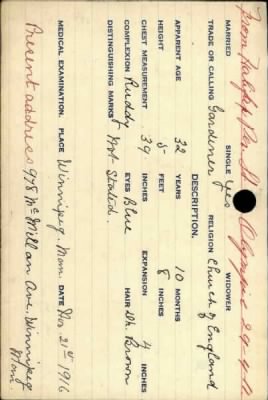 From Halifax Per SS Olympic
MARRIED SINGLE yes WIDOWER
TRADE OR CALLING Gardener RELIGION Church of England
DESCRIPTION.
APPARENT AGE 32 YEARS 10 MONTHS
HEIGHT 5 FEET 8 INCHES
CHEST MEASUREMENT 39 INCHES EXPANSION 4 INCHES
COMPLEXION Ruddy EYES Blue HAIR Dk. Brown
DISTINGUISHING MARKS Not Stated.
MEDICAL EXAMINATION. PLACE Winnipeg. Man. DATE Nov 21st 1916
Present address 978 McMillan Ave. Winnipeg
Man